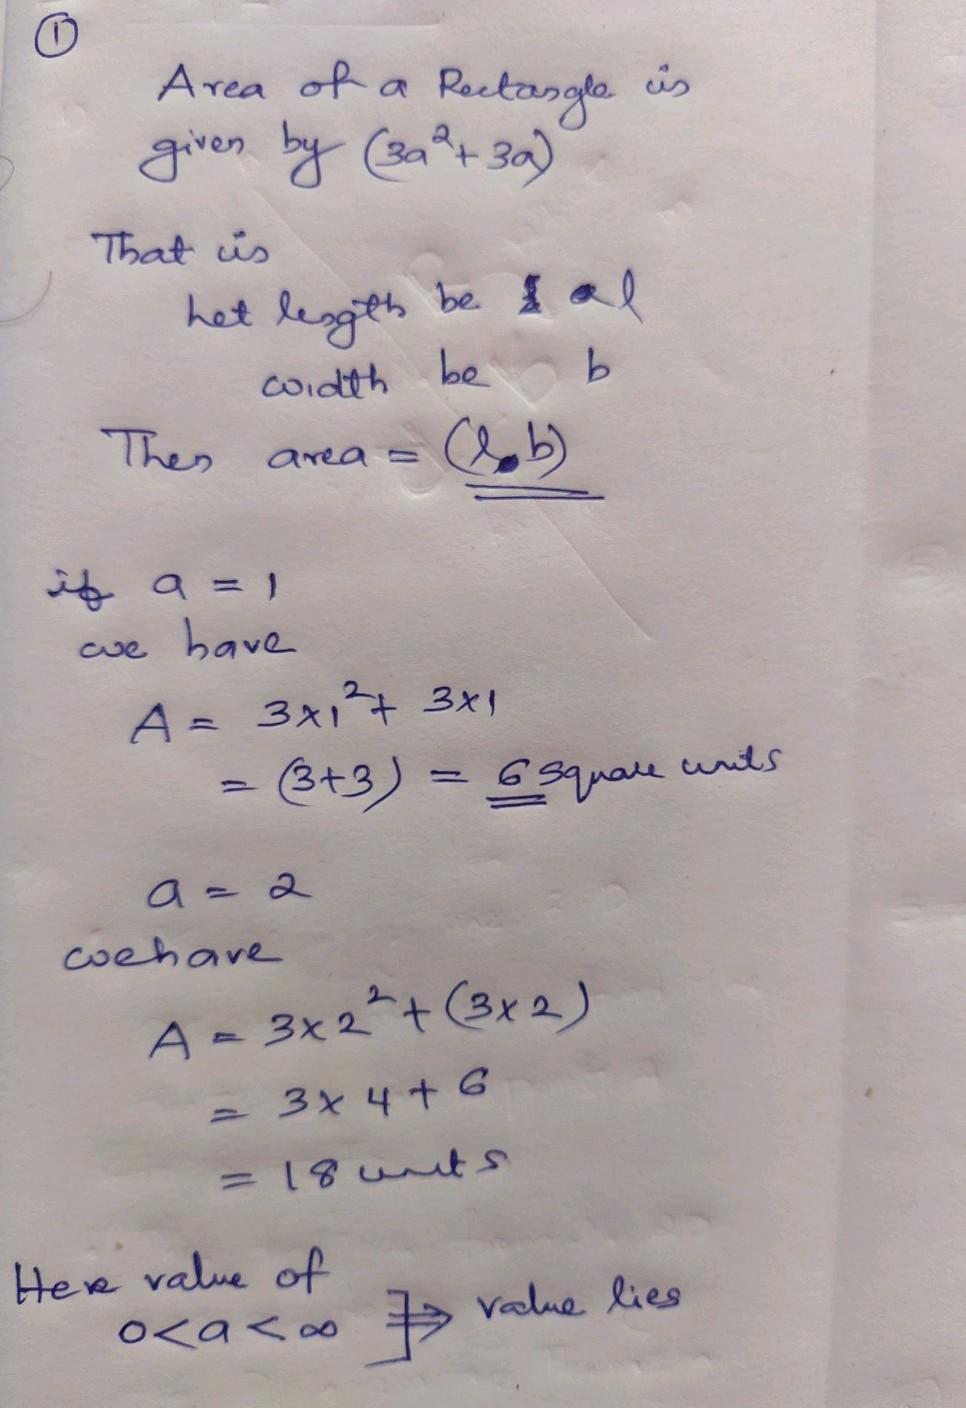 ①
Area of a Rectangle is
given by (3a²+ 3a)
That is
Let length be l
width be b
Then area = (l.b)
if a = 1
we have
A = 3x1²+ 3x1
= (3+3) = 6 square units
a = 2
we have
A = 3x2²+(3x2)
= 3x4+6
= 18 units
Here value of
0<a<∞ ]⇒ value lies